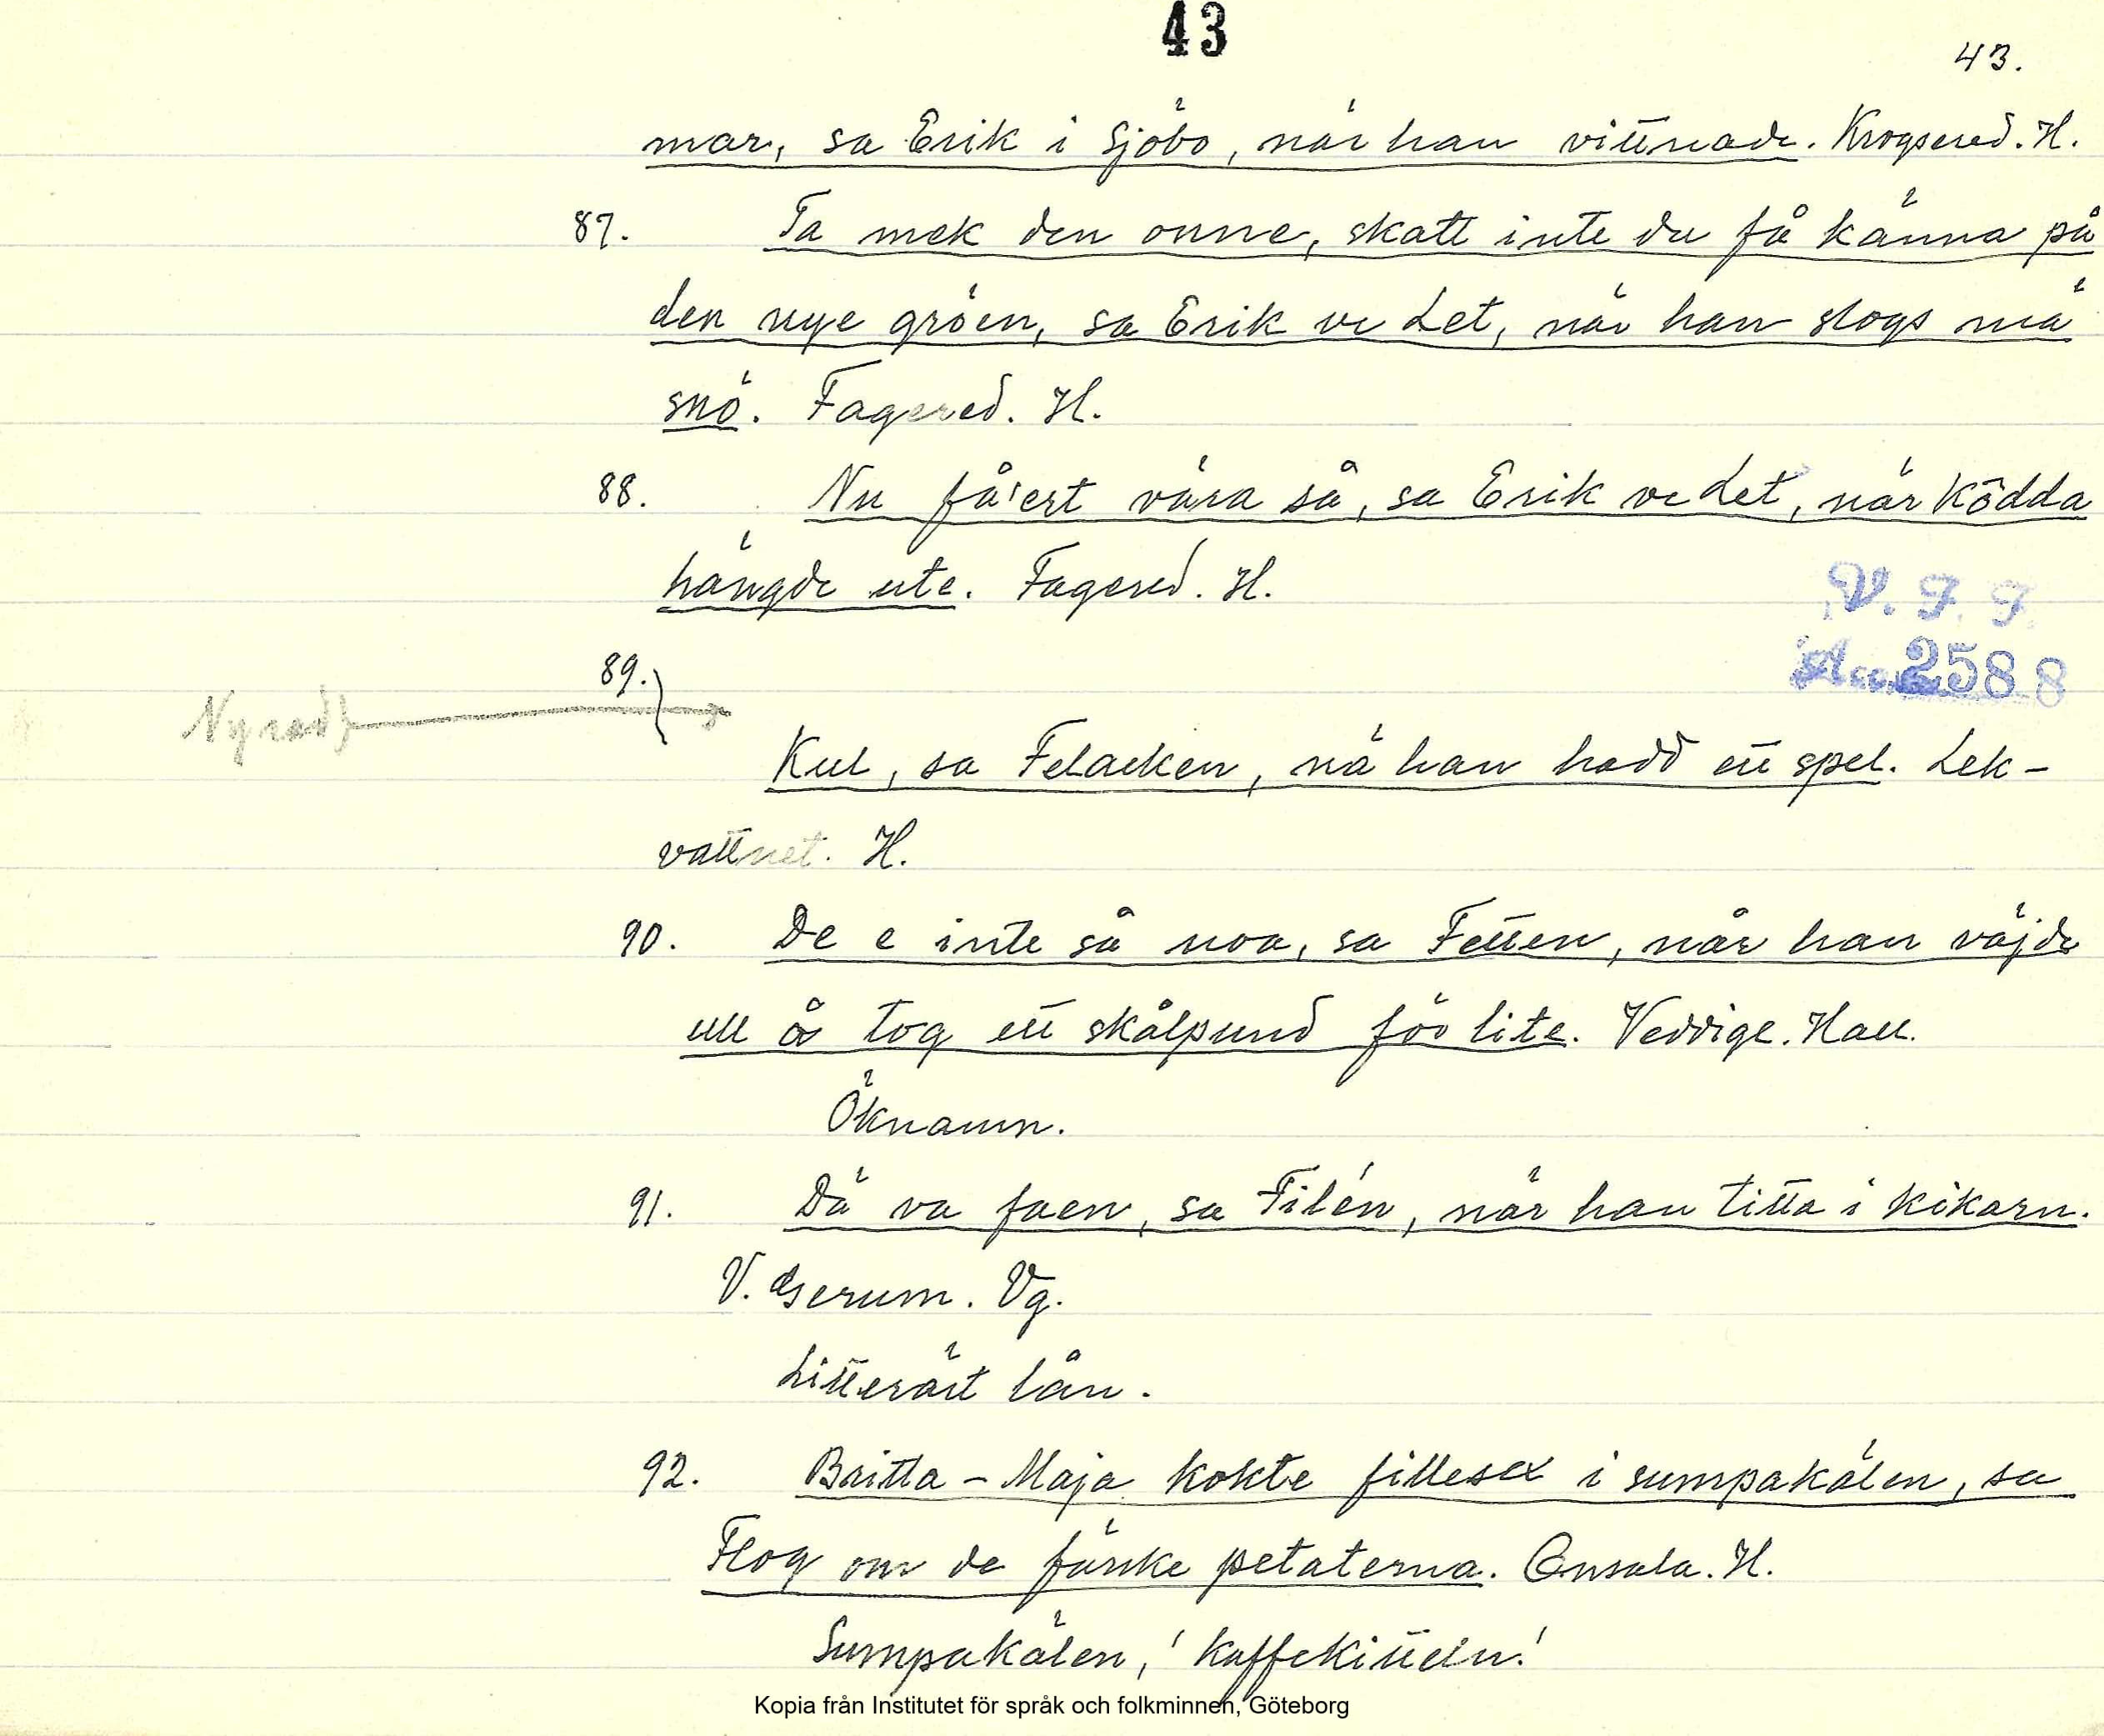 43
43.
mar, sa Erik i Sjöbo, när han vittnade. Krogsered. H.
87. Ta mek den onne, skatt inte du få känna på
den nye gröen, sa Erik ve Let, när han slogs mä
snö. Fagered. H.
88. Nu få'ert vära så, sa Erik ve Let, när ködda
hängde ute. Fagered. H.
V. F. F.
Acc. 2588
89.
Ny rad
Kul, sa Felacken, nä han hadd ett spel. Lek-
vattnet. H.
90. De e inte så noa, sa Fetten, når han väjde
ull å tog ett skålpund för lite. Veddige. Hall.
Öknamn.
91. Dä va faen, sa Filén, når han titta i kikarn.
V. Gerum. Vg.
Litterärt lån.
92. Britta-Maja kokte fillesex i sumpakälen, sa
Flog om de färske petaterna. Onsala. H.
Sumpakälen, 'kaffekitteln'.
Kopia från Institutet för språk och folkminnen, Göteborg